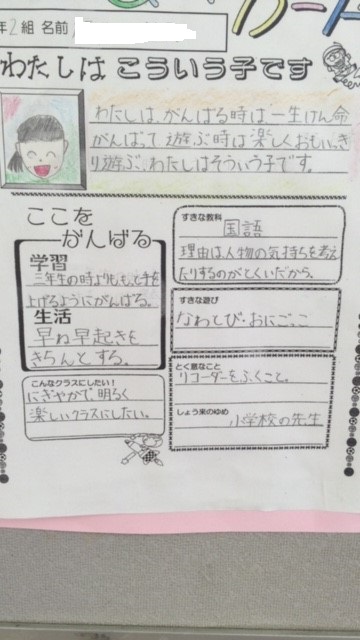 年2組 名前
カード
わたしは こういう子です
わたしは、がんばる時は一生けん命
がんばって遊ぶ時は楽しくおもいっき
り遊ぶ。わたしはそういう子です。
ここを
がんばる
学習
三年生の時よりもっと手を
上げるようにがんばる。
生活
早ね早起きを
きちんとする。
こんなクラスにしたい！
にぎやかで、明るく
楽しいクラスにしたい。
すきな教科
国語
理由は、人物の気持ちを考え
たりするのがとくいだから。
すきな遊び
なわとび・おにごっこ
とく意なこと
リコーダーをふくこと。
しょう来のゆめ
小学校の先生